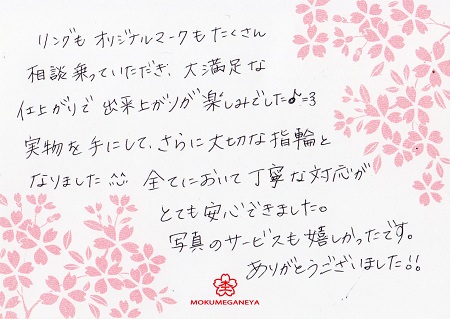 リングも オリジナルマークも たくさん
相談乗っていただき、大満足な
仕上がりで 出来上がりが 楽しみでした♪=3
実物を手にして、さらに大切な指輪と
なりました^^ 全てにおいて丁寧な対応が
とても安心できました。
写真のサービスも嬉しかったです。
ありがとうございました!!
MOKUMEGANEYA